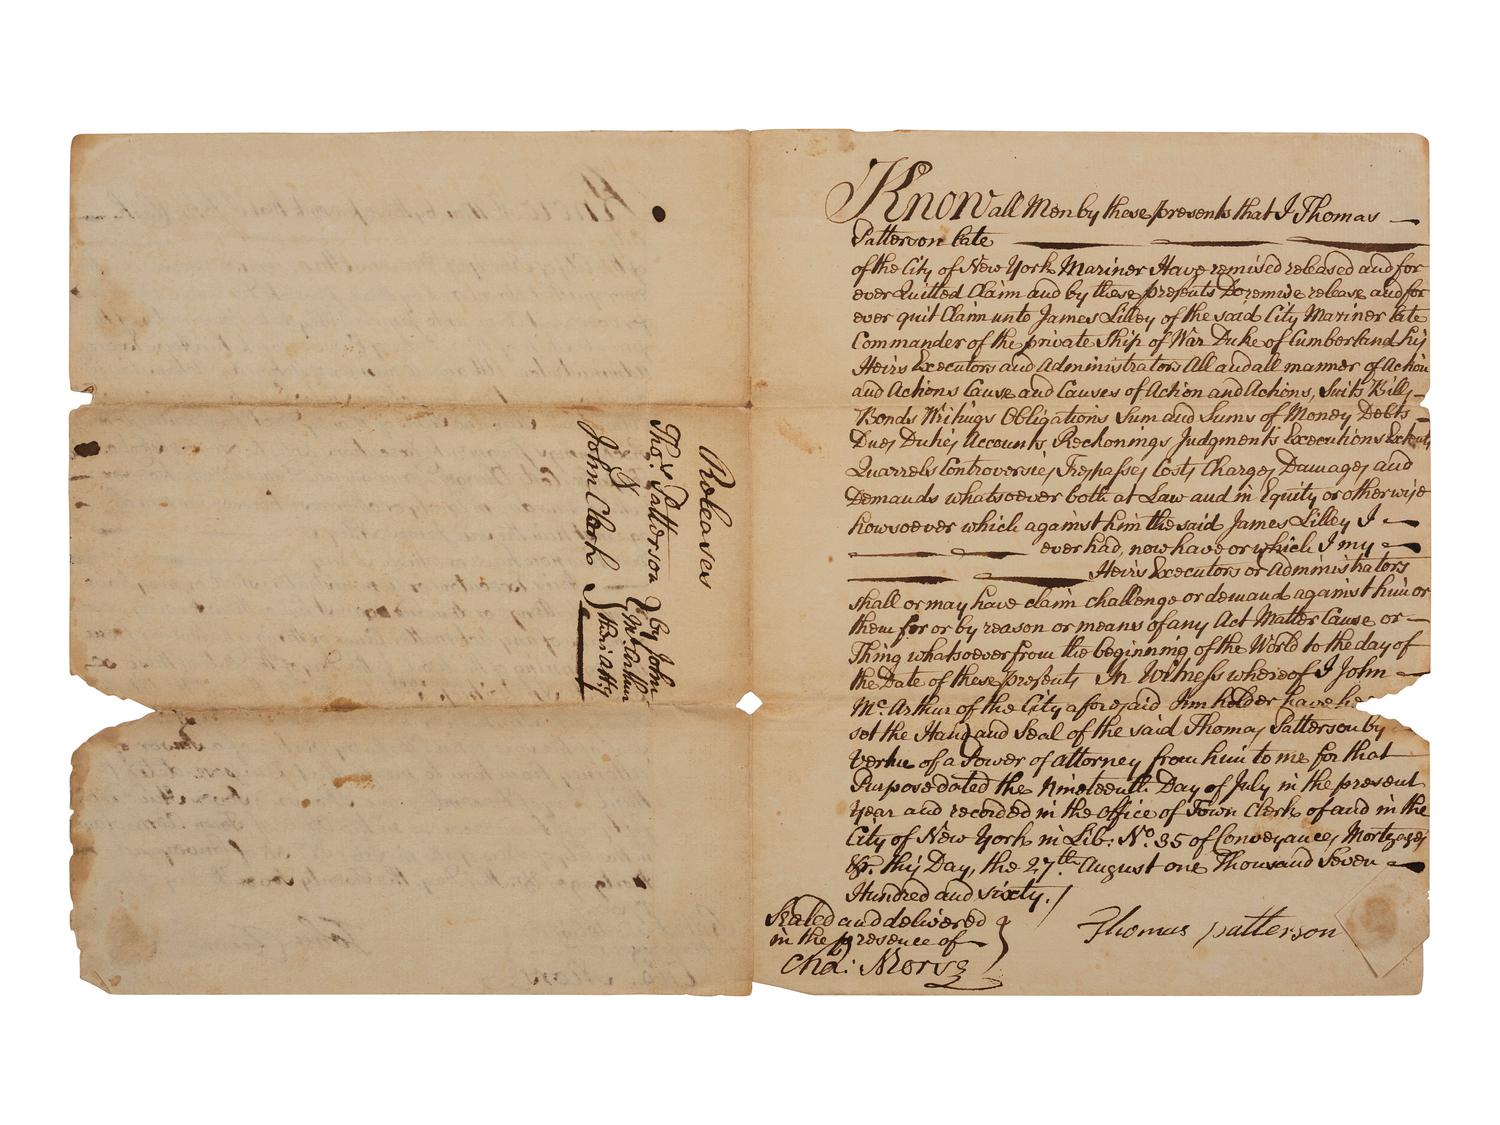 Releases
Tho.s Patterson } by John
& McArthur
John Clark } their Atty
Know all Men by these presents that I Thomas
Patterson late
of the City of New York Mariner Have remised released and for
ever Quitted Claim and by these presents Do remise release and for
ever quit Claim unto James Lilley of the said City Mariner late
Commander of the private Ship of War Duke of Cumberland his
Heirs Executors and Administrators All and all manner of Action
and Actions Cause and Causes of Action and Actions, Suits Bills
Bonds Writings Obligations Sum and Sums of Money Debts
Dues Duties Accounts Reckonings Judgments Executions Extents
Quarrels Controversies Trespasses Costs Charges Damages and
Demands whatsoever both at Law and in Equity or otherwise
howsoever which against him the said James Lilley I
ever had, now have or which I my
Heirs Executors or Administrators
shall or may have claim challenge or demand against him or
them for or by reason or means of any Act Matter Cause or
Thing whatsoever from the beginning of the World to the day of
the Date of these presents In Witness whereof I John
Mc.Arthur of the City aforesaid Innholder have he
set the Hand and Seal of the said Thomas Patterson by
vertue of a Power of attorney from him to me for that
Purpose dated the Nineteenth Day of July in the present
Year and recorded in the office of Town Clerk of and in the
City of New York in Lib: No. 35 of Conveyances Mortgages
&c. this Day, the 27th August one Thousand Seven
Hundred and sixty. /
Sealed and delivered
in the presence of }
Cha: Morse
Thomas patterson